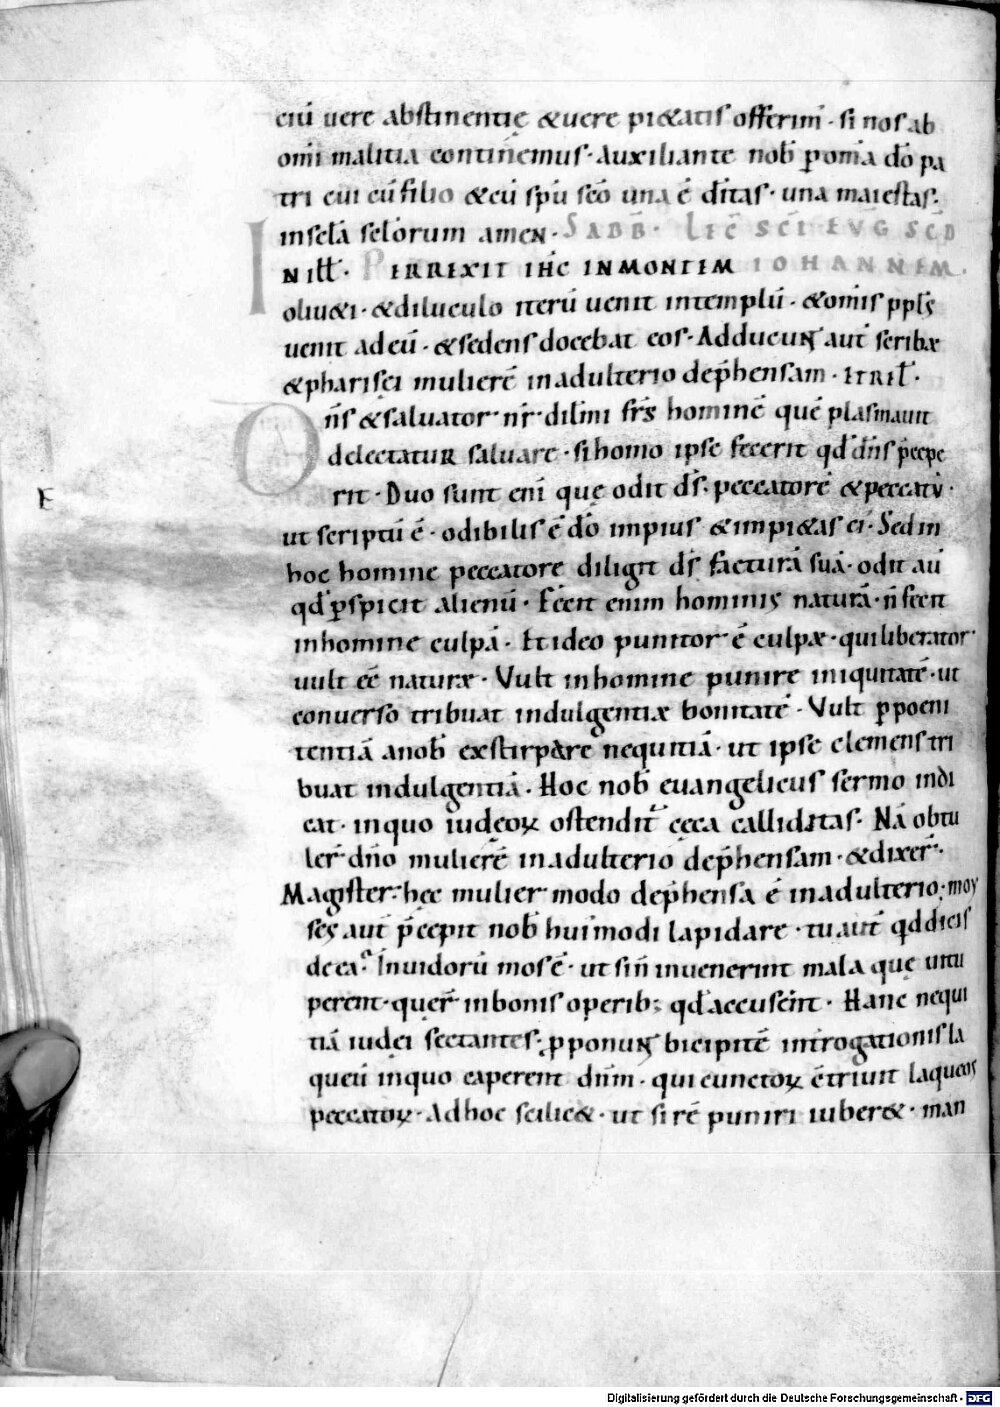 ciū uere abstinentię &uere pi&atis offerim̄ · si nos ab
om̄i malitia continemus · Auxiliante nob̄ p omīa dō pa
tri cui cū filio &cū sp̄u sc̄o una ē d̄itas · una maiestas ·
insc̄lā sc̄lorum amen · SABB̄ · LEC̄ SC̄I EVḠ SC̄D
N ILL · PERREXIT IHC IN MONTEM IOHANNEM ·
oliu&i · &diluculo iterū uenit intemplū · &om̄is ppl̄s
uenit adeū · &sedens docebat eos · Adducuṅ aut̄ scribæ
&pharisei mulierē inadulterio dep̄hensam · ETREL̄ ·
Dn̄s &saluator nr̄ · dil̄mi fr̄s hominē quē plasmauit
delectatur saluare · si homo ipse fecerit qd̄ dn̄s p̄cepe
E
rit · Duo sunt eni quę odit d̄s · peccatorē &peccatū ·
ut scriptū ē · odibilis ē dō impius &impi&as ei · Sed in
hoc homine peccatore diligit d̄s facturā suā · odit aū
qd̄ p̄spicit alienū · Fecit enim hominis naturā · n̄ fecit
inhomine culpā · Et ideo punitor ē culpæ · qui liberator
uult eē naturæ · Vult inhomine punire iniquitatē · ut
conuerso tribuat indulgentiæ bonitatē · Vult p poeni
tentiā anob̄ exstirpare nequitiā · ut ipse clemens tri
buat indulgentiā · Hoc nob̄ euangelicus sermo indi
cat · inquo iudęoꝝ ostendit̄ cęca calliditas · Nā obtu
ler̄ dn̄o mulierē inadulterio dep̄hensam · &dixer̄ ·
Magister · hęc mulier modo dep̄hensa ē inadulterio · moy
ses aut̄ p̄cepit nob̄ hui modi lapidare · tu aut̄ qd dicis
de ea? Inuidorū mos ē · ut sin̄ inuenerint mala quę uitu
perent · quer̄ inbonis operib; qd̄ accusent · Hanc nequi
tiā iudei sectantes · pponuṅ bicipitē introgationis la
queū inquo caperent dn̄m · qui cunctoꝝ c̄triuit laqueos
peccatoꝝ · Ad hoc scilic& · ut si rē puniri iuber& · man
Digitalisierung gefördert durch die Deutsche Forschungsgemeinschaft - DFG